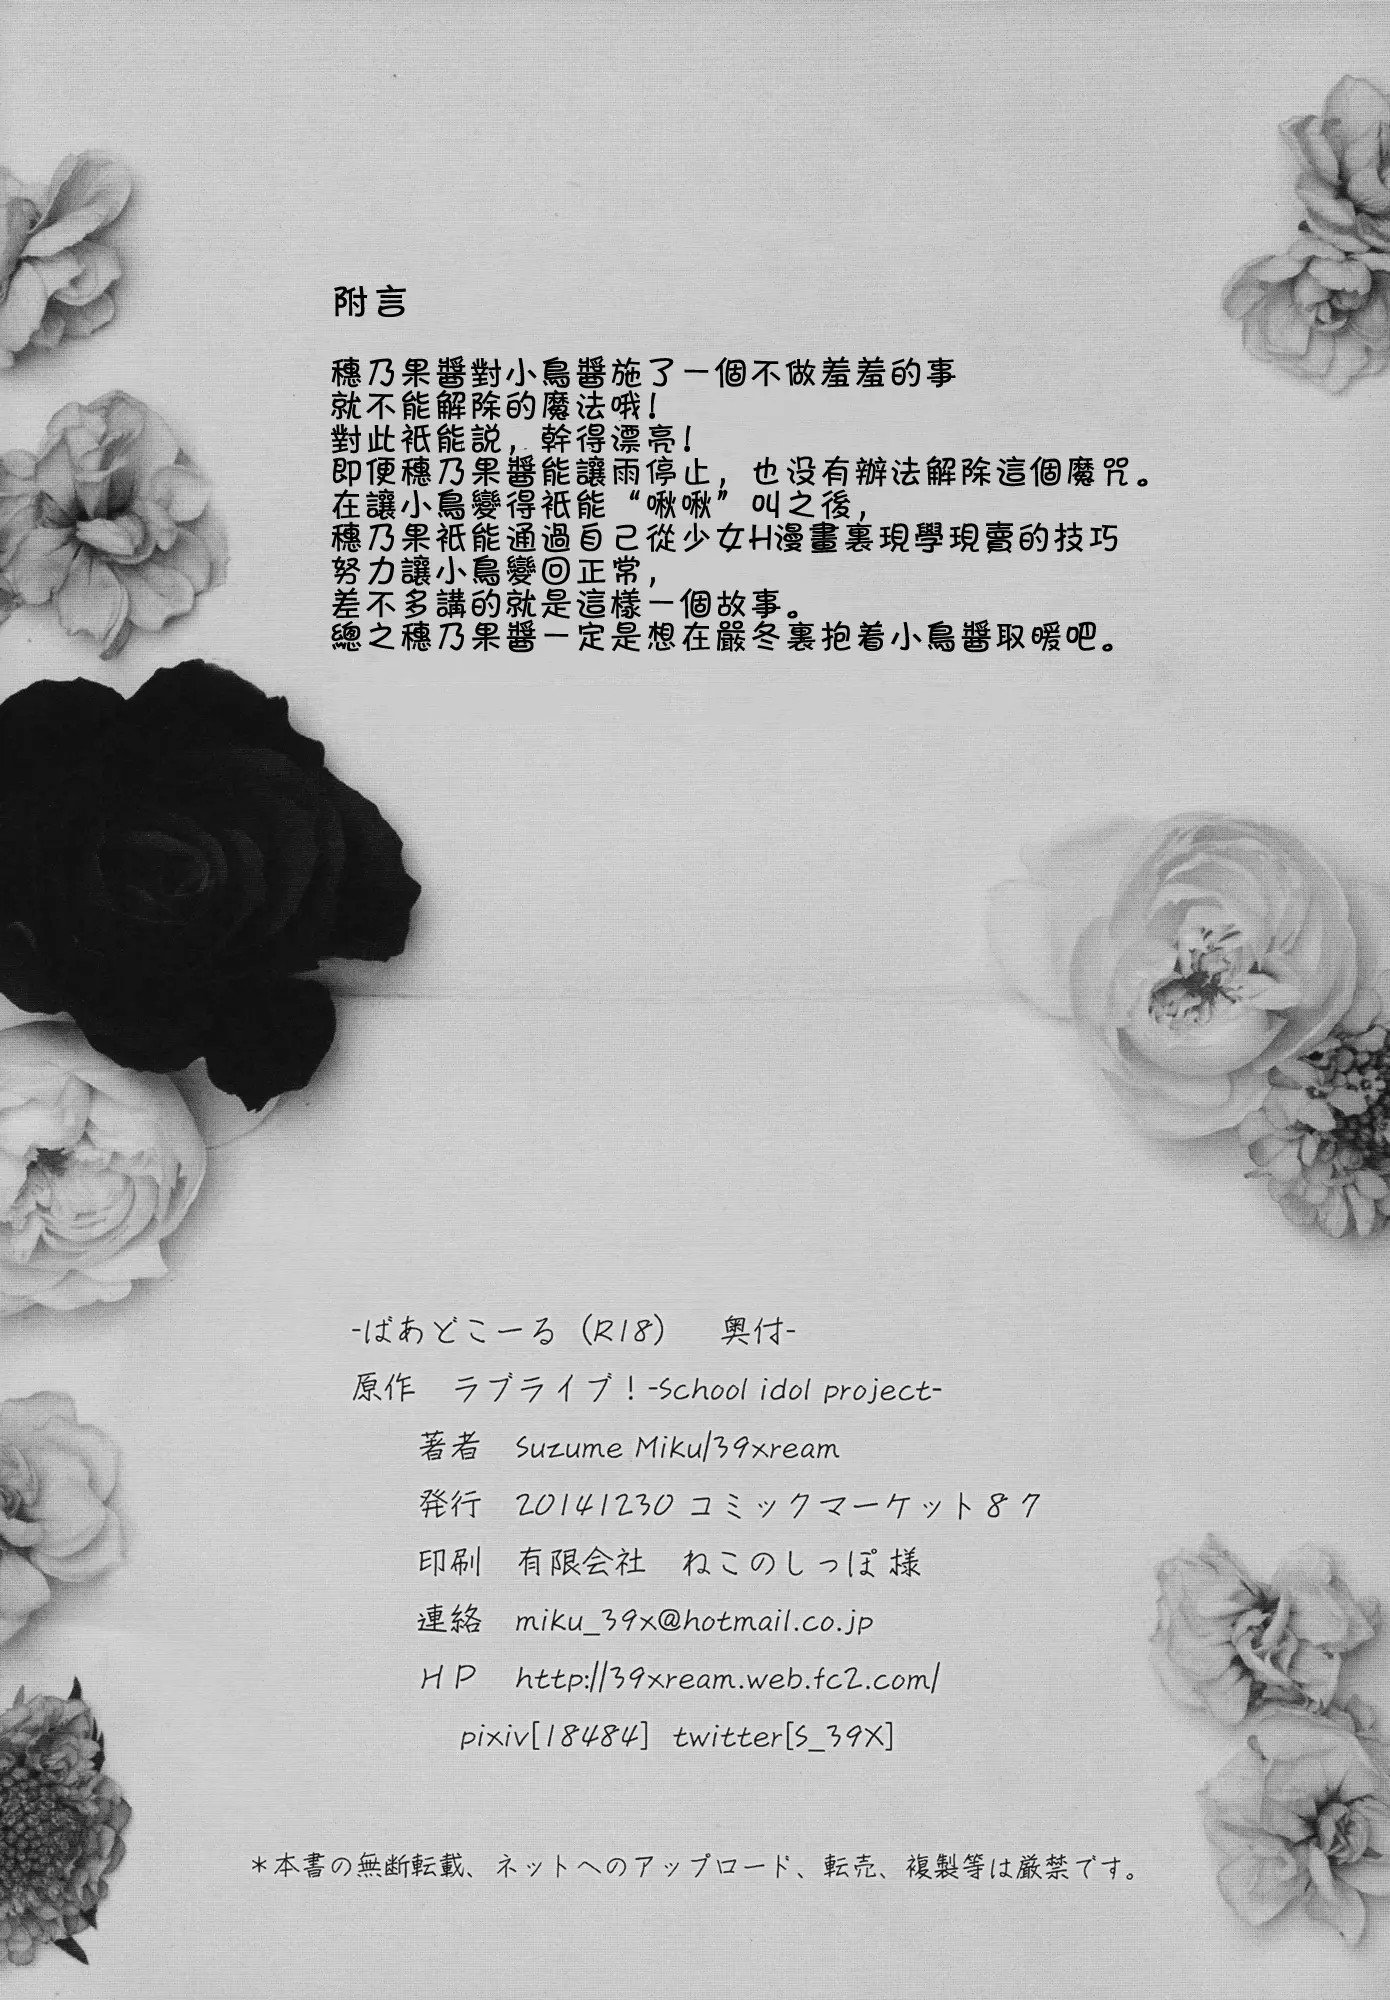 附言
穗乃果醬對小鳥醬施了一個不做羞羞的事
就不能解除的魔法哦!
對此衹能説,幹得漂亮!
即便穗乃果醬能讓雨停止,也没有辦法解除這個魔咒。
在讓小鳥變得衹能“啾啾”叫之後,
穗乃果衹能通過自己從少女H漫畫裏現學現賣的技巧
努力讓小鳥變回正常,
差不多講的就是這樣一個故事。
總之穗乃果醬一定是想在嚴冬裏抱着小鳥醬取暖吧。
-ばあどこーる（R18） 奥付-
原作 ラブライブ！-School idol project-
著者 Suzume Miku/39xream
発行 20141230 コミックマーケット８７
印刷 有限会社 ねこのしっぽ 様
連絡 miku_39x@hotmail.co.jp
ＨＰ http://39xream.web.fc2.com/
pixiv[18484] twitter[S_39X]
＊本書の無断転載、ネットへのアップロード、転売、複製等は厳禁です。